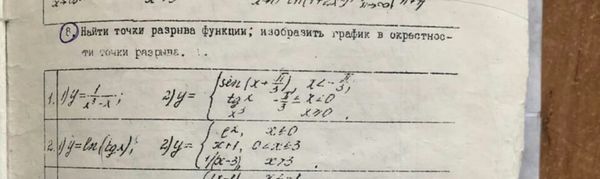 8. Найти точки разрыва функции; изобразить график в окрестнос-
ти точки разрыва.
1. 1) y = 1/(x³-x); 2) y = { sin(x + π/3), x < -π/3;
tg x -π/3 ≤ x ≤ 0
x³ x > 0 .
2. 1) y = ln(tg x); 2) y = { e^x, x ≤ 0
x+1, 0 < x ≤ 3
1/(x-3) x > 3 .